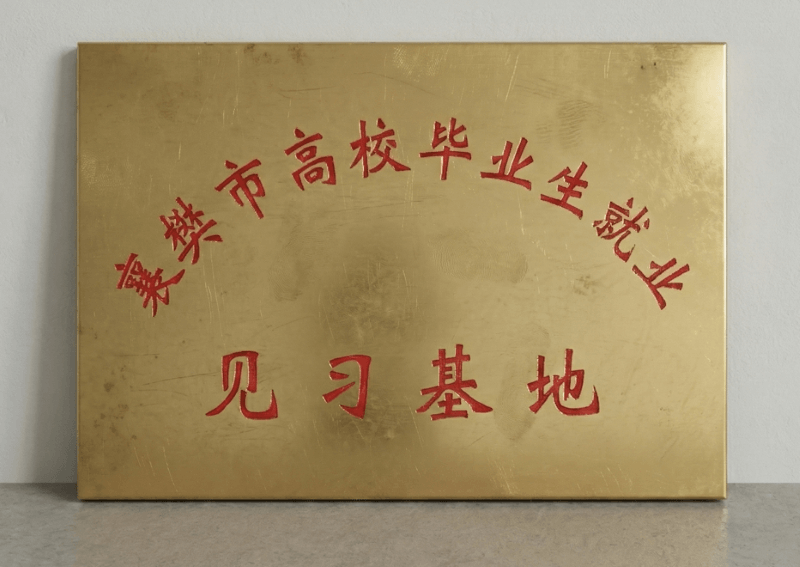 襄樊市高校毕业生就业
见习基地